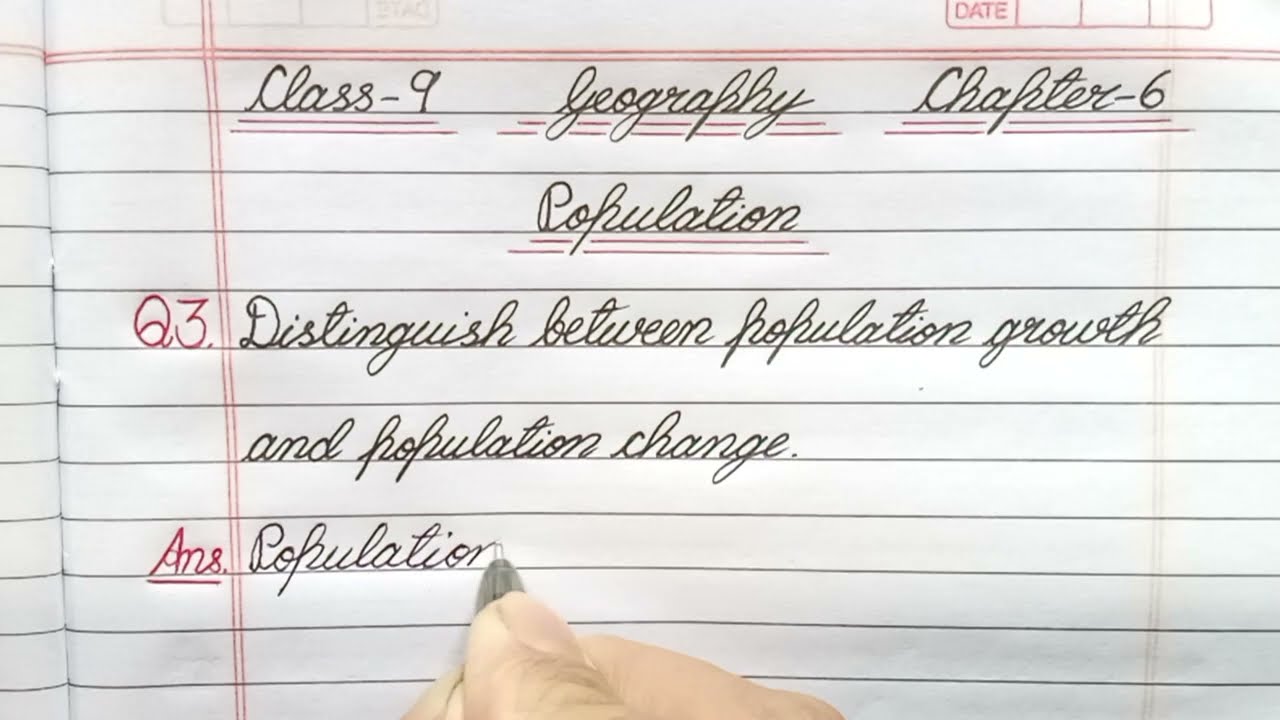 DATE
Class-9 Geography Chapter-6
Population
Q3. Distinguish between population growth
and population change.
Ans. Population